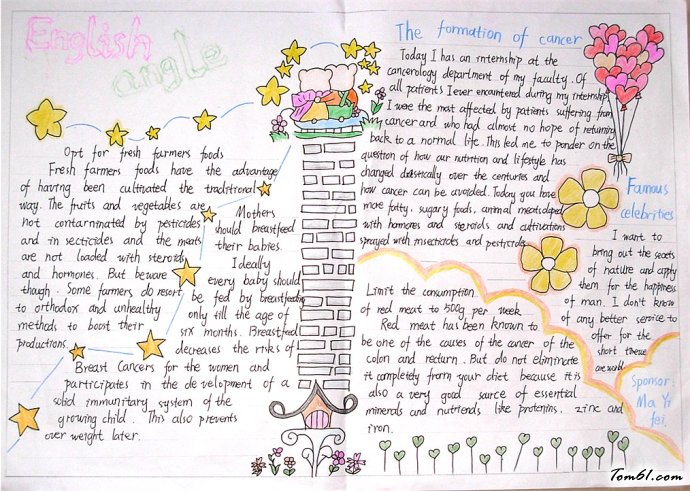 English
angle
Opt for fresh farmers foods
Fresh farmers foods have the advantage
of having been cultivated the traditronal
way. The fruits and vegetables are
not contarninated by pesticides
and in secticides and the meats
are not loaded with steroids
and hormones. But beware
though. Some farmers do resort
to orthodox and unhealthy
methods to boost their
productions.
Mothers
should breastfeed
their babies.
Ideally
every baby should
be fed by breastfeeding
only till the age of
six months. Breastfeed
decreases the risks of
Breast Cancers for the women and
participates in the development of a
solid immunitary system of the
growing child. This also prevents
over weight later.
The formation of cancer
Today I has an internship at the
cancerology department of my faculty. Of
all patients I ever encountered during my internship,
I were the most affected by patients suffering from
cancer and who had almost no hope of returning
back to a normal life. This led me to ponder on the
question of how our nutrition and lifestyle has
changed drastically over the centuries and
how cancer can be avoided. Today you have
more fatty, sugary foods, animal meats doped
with hormones and steroids and cultivations
sprayed with insecticides and pestricides.
Limit the consumption
of red meat to 500g per week
Red meat has been known to
be one of the causes of the cancer of the
colon and recturn. But do not eliminate
it completely from your diet because it is
also a very good sarce of essential
minerals and nutriends like protenins, zinc and
iron.
Famous
celebrities
I want to
bring out the secrets
of nature and apply
them for the happiness
of man. I don't know
of any better service to
offer for the
short
Sponsor:
Ma Yi
fei.
Tom61.com